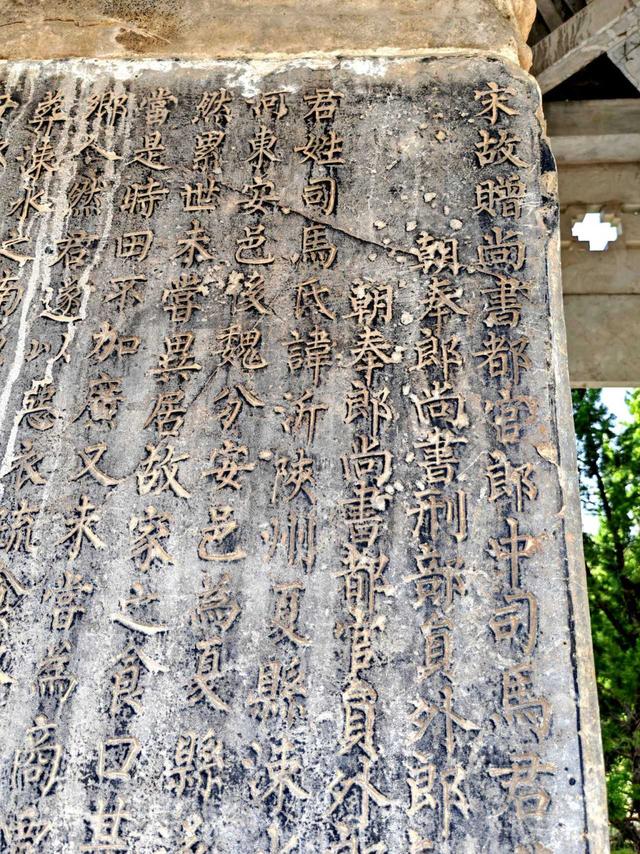 宋故贈尚書都官郎中司馬君
朝奉郎尚書刑部員外郎
朝奉郎尚書都官員外郎
君姓司馬氏諱沂陝州夏縣涑
河東安邑後魏分安邑為夏縣
然累世未嘗異居故家之食口甚
當是時田不加廣又未嘗為商
鄉人然君遂以惡衣疏
葬涑水之南